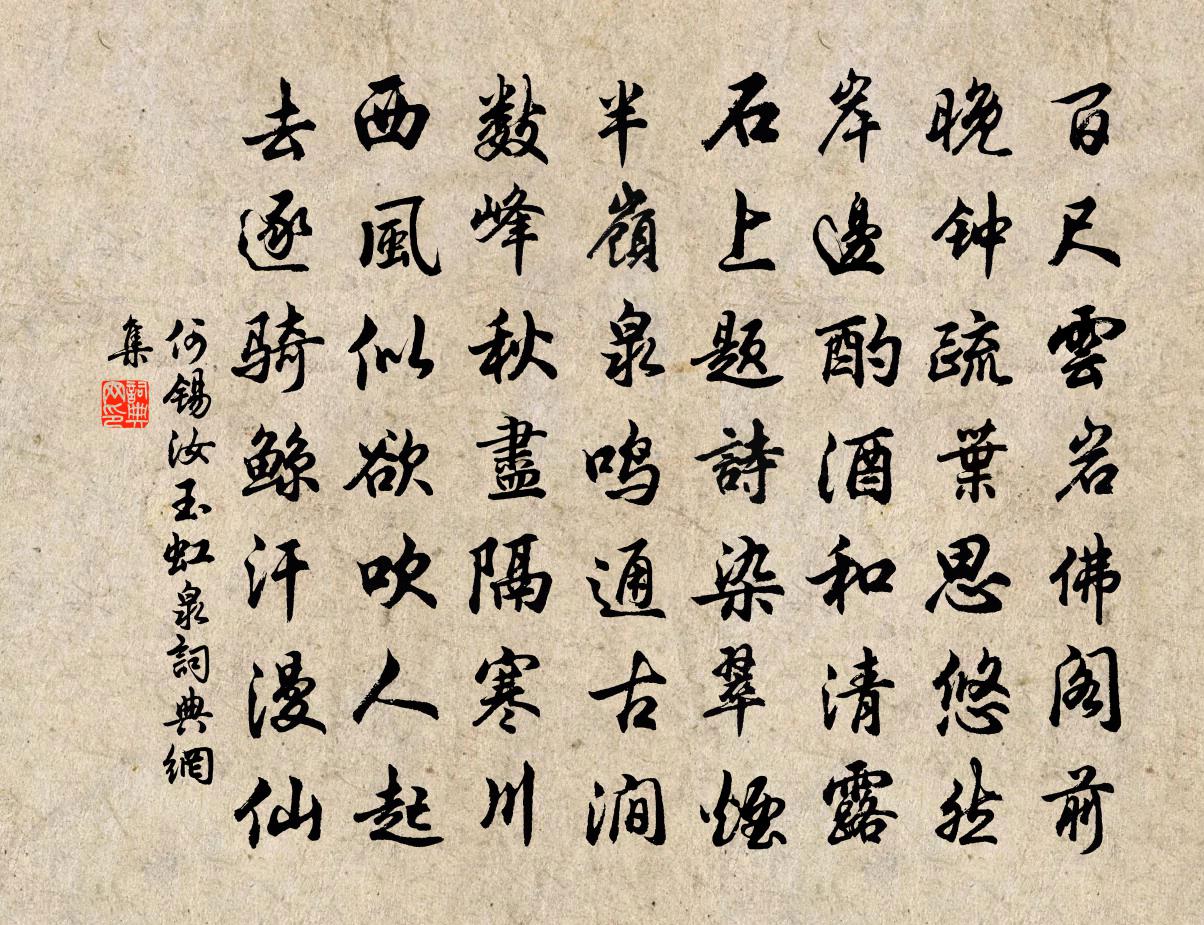 百尺雲岩佛阁前
晚钟疏葉思悠然
岸邊酌酒和清露
石上题詩染翠煙
半嶺泉鸣通古澗
數峰秋盡隔寒川
西風似欲吹人起
去逐骑鲸汗漫仙
何錫汝玉虹泉詞典網
集
詞典
网印